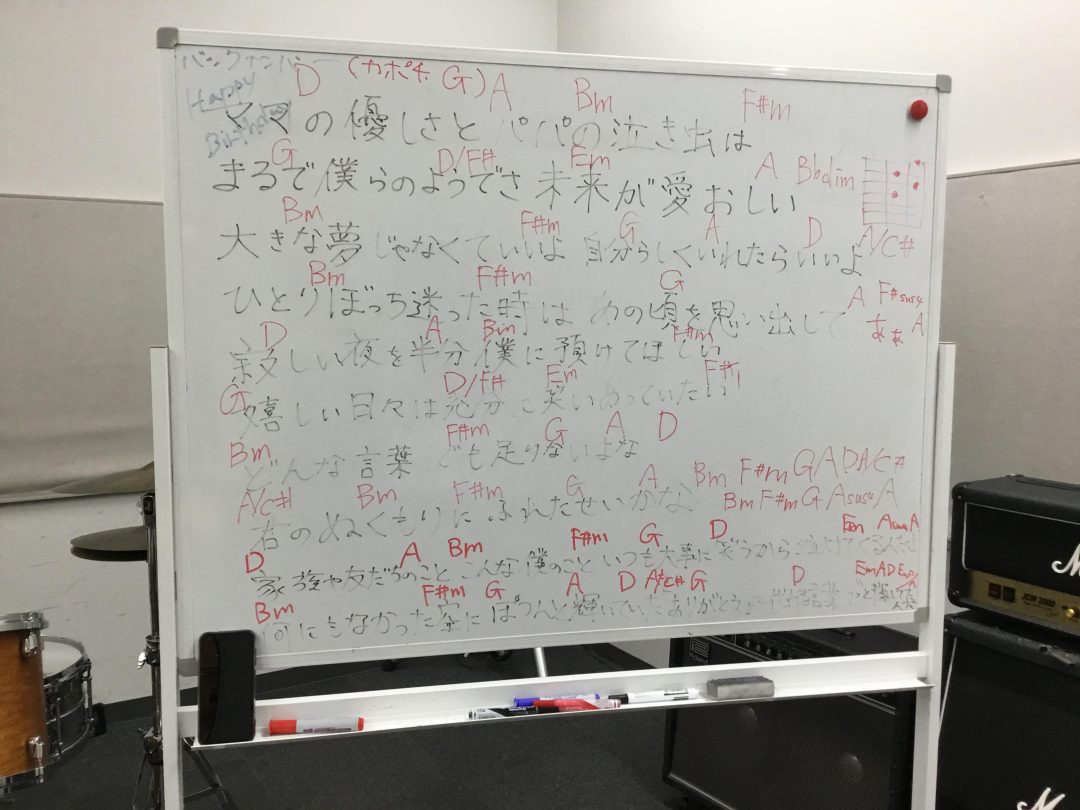 バックナンバー
Happy
Birthday
D (カポ4 G) A Bm F#m
ママの優しさと パパの泣き虫は
G D/F# Em A Bbdim
まるで僕らのようでさ 未来が愛おしい
Bm F#m G A D A/C#
大きな夢じゃなくていいよ 自分らしくいれたらいいよ
Bm F#m G A F#sus4
ひとりぼっち迷った時は あの頃を思い出して ぁぁ A
D A Bm F#m
寂しい夜を半分僕に預けてほしい
G D/F# Em F#
嬉しい日々は充分に笑いあっていたい
Bm F#m G A D
どんな言葉でも足りないよな
A/C# Bm F#m G A Bm F#m G A D A/C#
君のぬくもりにふれたせいかな Bm F#m G Asus4 A
D A Bm F#m G D Em Asus4 A
家族や友だちのこと こんな僕のこと いつも大事に笑うから泣けてくるんだよ
Bm F#m G A D A/C# G D Em A D Em
何にもなかった空に ぽつんと輝いていた「ありがとう」に代わる言葉 ずっと探していたんだ
JCM 2000
Roland